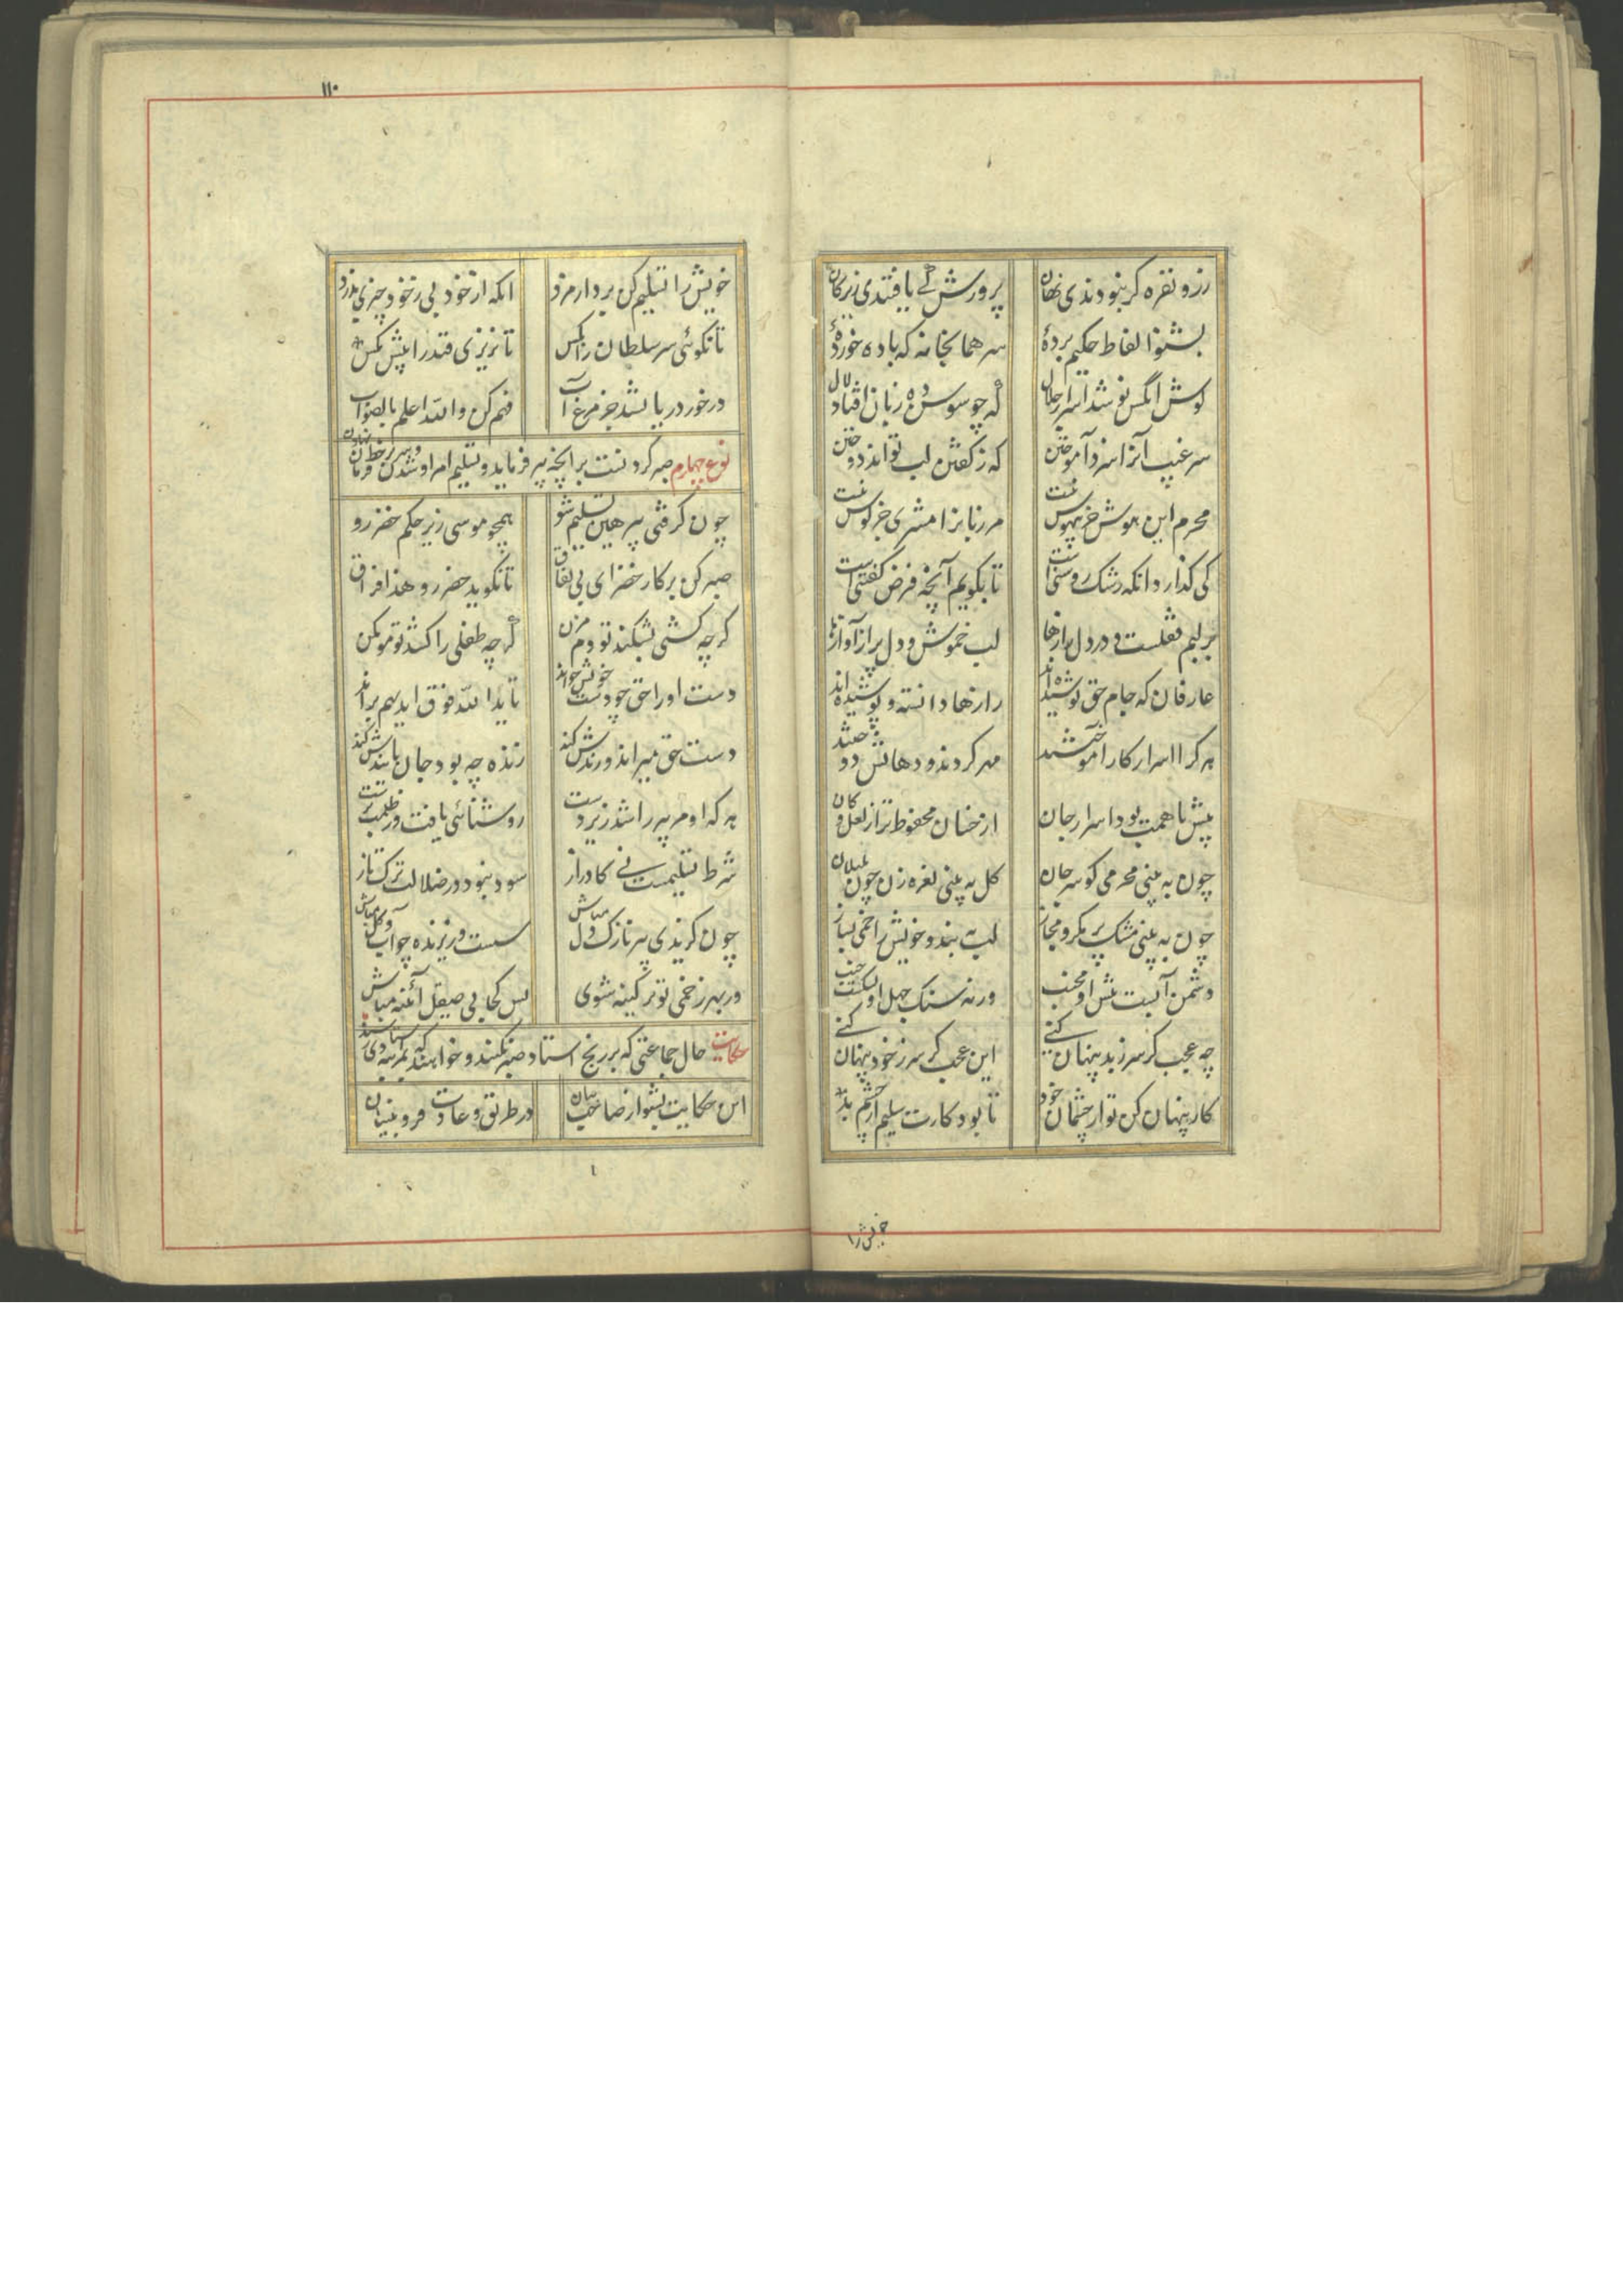 زر و نقره گر نبودندی نهان پرورش کی یافتندی زیر کان
بشنو الفاظ حکیم بردهٔ سر همانجا نه که باده خوردهٔ
گوش آنکس نوشد اسرار جلال که چو سوسن ده زبان افتاد و لال
سر غیب آنرا سزد آموختن که ز گفتن لب تواند دوختن
محرم این هوش جز بیهوش نیست مر زبانرا مشتری جز گوش نیست
کی گذارد آنکه رشک روشنی است تا بگویم آنچه فرض گفتنی است
بر لبم قفلست و در دل رازها لب خموش و دل پر از آوازها
عارفان که جام حق نوشیده اند رازها دانسته و پوشیده اند
هر کرا اسرار کار آموختند مهر کردند و دهانش دوختند
پیش با همت بود اسرار جان از خسان محفوظ تر از لعل و کان
چون به بینی محرمی گو سر جان گل به بینی نعره زن چون بلبلان
چون به بینی مشک پر مکر و مجاز لب به بند و خویش را خمی بساز
دشمن آبست پیش او مجنب ورنه سنگ جهل او بشکست خنب
چه عجب گر سر ز بد پنهان کنی این عجب که سر ز خود پنهان کنی
کار پنهان کن تو از چشمان خود تا بود کارت سلیم از چشم بد
خویش را
۱۱۰
خویش را تسلیم کن بر دار مزد وانگه از خود بی ز خود چیزی بدزد
تا نگوئی سر سلطان را بکس تا نریزی قند را پیش مگس
در خور دریا نشد جز مرغ آب فهم کن والله اعلم بالصواب
نوع چهارم صبر کردنست بر آنچه پیر فرماید و تسلیم امر او شدن و سر بر خط فرمان
چون گرفتی پیر هین تسلیم شو همچو موسی زیر حکم خضر رو
صبر کن بر کار خضر ای بی نفاق تا نگوید خضر رو هذا فراق
گر چه کشتی بشکند تو دم مزن گر چه طفلی را کشد تو مو مکن
دست او را حق چو دست خویش خواند تا یدالله فوق ایدیهم براند
دست حق میراندش زنده ش کند زنده چه بود جان پاینده ش کند
هر که او مر پیر را شد زیر دست روشنائی یافت و ز ظلمت برست
شرط تسلیمست نی کار دراز سود نبود در ضلالت ترک تاز
چون گزیدی پیر نازک دل مباش سست و ریزنده چو آب و گل مباش
ور بهر زخمی تو پر کینه شوی پس کجا بی صیقل آئنه
حکایت حال جماعتی که بر رنج استاد صبر نکنند و خواهند که بمرتبه استادی رسند
این حکایت بشنو از صاحب بیان در طریق و عادت قزوینیان